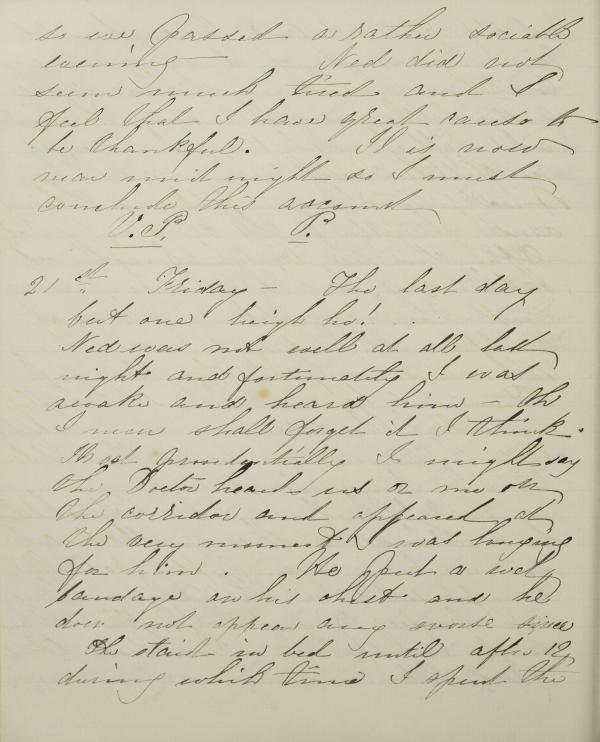 so we passed a rather sociable
evening — Ned did not
seem much tired and I
feel that I have great cause to
be thankful. It is now
near mid night so I must
conclude this account
V.P. P.
21st Friday — The last day
but one heigh ho!
Ned was not well at all last
night and fortunately I was
awake and heard him — Oh
I never shall forget it I think.
Most providentially I might say
the Doctor heard us or me on
the corridor and appeared at
the very moment I was longing
for him. He put a wet
bandage on his chest and he
does not appear any worse since
He staid in bed until after 12,
during which time I spent the